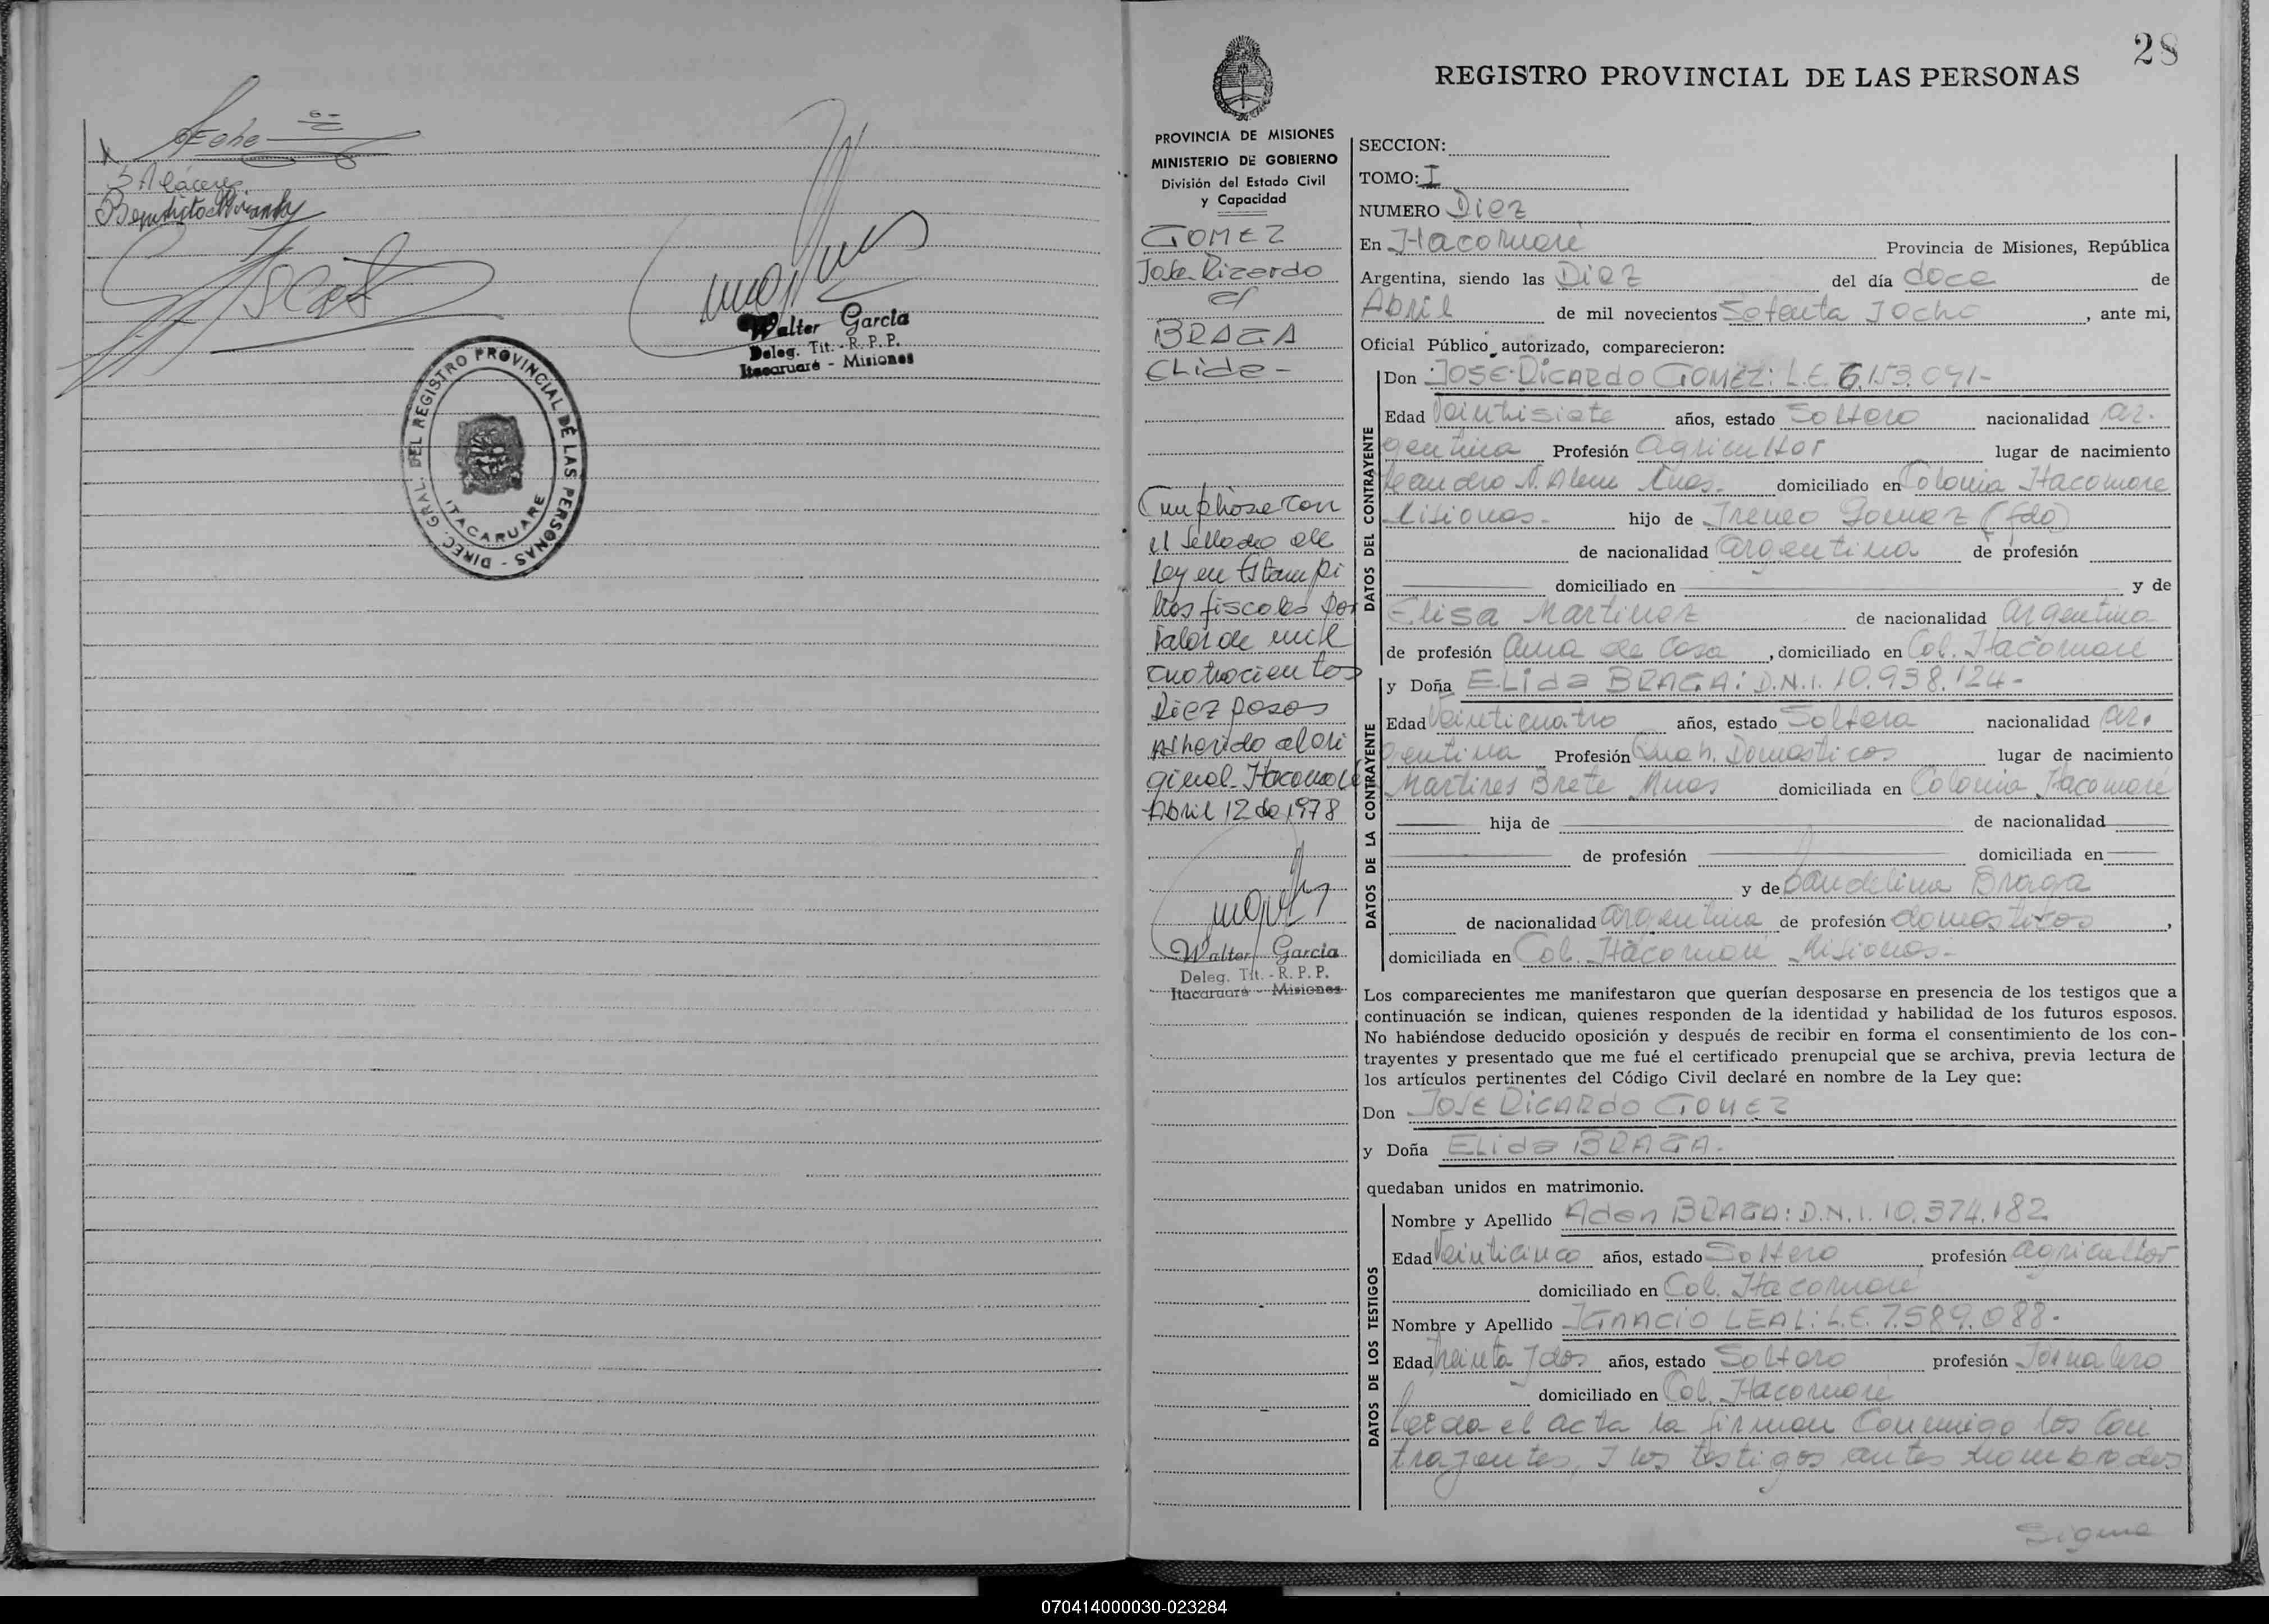 Benedicto Miranda
Walter Garcia
Deleg. Tit. - R. P. P.
Itacaruaré - Misiones
DIREC. GRAL. DEL REGISTRO PROVINCIAL DE LAS PERSONAS -
ITACARUARE
28
REGISTRO PROVINCIAL DE LAS PERSONAS
PROVINCIA DE MISIONES
MINISTERIO DE GOBIERNO
División del Estado Civil
y Capacidad
GOMEZ
Jose Ricardo
c/
BRAGA
Elida -
Cumplióse con
el Sellado de
Ley en Estampi
llas fiscales por
valor de mil
cuatrocientos
Diez pesos
Adherido al ori
ginal. Itacaruaré
Abril 12 de 1978
Walter Garcia
Deleg. Tit. - R. P. P.
Itacaruaré - Misiones
SECCION:
TOMO: I
NUMERO Diez
En Itacaruaré Provincia de Misiones, República
Argentina, siendo las Diez del día doce de
Abril de mil novecientos Setenta y ocho, ante mi,
Oficial Público autorizado, comparecieron:
DATOS DEL CONTRAYENTE
Don JOSE RICARDO GOMEZ: L.E. 6.153.091-
Edad Veintisiete años, estado Soltero nacionalidad ar-
gentina Profesión agricultor lugar de nacimiento
Leandro N. Alem Mnes. domiciliado en Colonia Itacaruaré
Misiones. hijo de Ireneo Gomez (fdo)
de nacionalidad argentina de profesión
domiciliado en y de
Elisa Martinez de nacionalidad argentina
de profesión ama de Casa, domiciliado en Col. Itacaruaré
DATOS DE LA CONTRAYENTE
y Doña ELida BRAGA: D.N.I. 10.938.124-
Edad Veinticuatro años, estado Soltera nacionalidad ar-
gentina Profesión Queh. Domesticos lugar de nacimiento
Martires Brete Mnes domiciliada en Colonia Itacaruaré
hija de de nacionalidad
de profesión domiciliada en
y de Candelina Braga
de nacionalidad argentina de profesión domesticos,
domiciliada en Col. Itacaruaré Misiones.
Los comparecientes me manifestaron que querían desposarse en presencia de los testigos que a
continuación se indican, quienes responden de la identidad y habilidad de los futuros esposos.
No habiéndose deducido oposición y después de recibir en forma el consentimiento de los con-
trayentes y presentado que me fué el certificado prenupcial que se archiva, previa lectura de
los artículos pertinentes del Código Civil declaré en nombre de la Ley que:
Don JOSE RICARDO GOMEZ
y Doña ELida BRAGA.
quedaban unidos en matrimonio.
DATOS DE LOS TESTIGOS
Nombre y Apellido Adan BRAGA: D.N.I. 10.374.182
Edad Veinticinco años, estado Soltero profesión agricultor
domiciliado en Col. Itacaruaré
Nombre y Apellido IGNACIO LEAL: L.E. 7.589.088-
Edad treinta y dos años, estado Soltero profesión Jornalero
domiciliado en Col. Itacaruaré
Leida el acta la firman Conmigo los Con
trayentes, y los testigos antes nombrados
Sigue
070414000030-023284